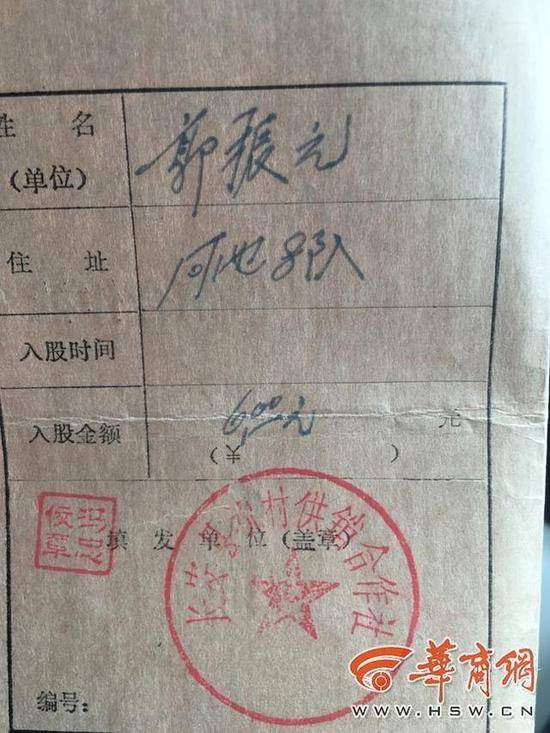 姓 名
(单位)
郭振元
住 址
河池8队
入股时间
入股金额
6.00元
元
(¥ )
填发单位(盖章)
村供销合作社
编号:
華商網
WWW.HSW.CN